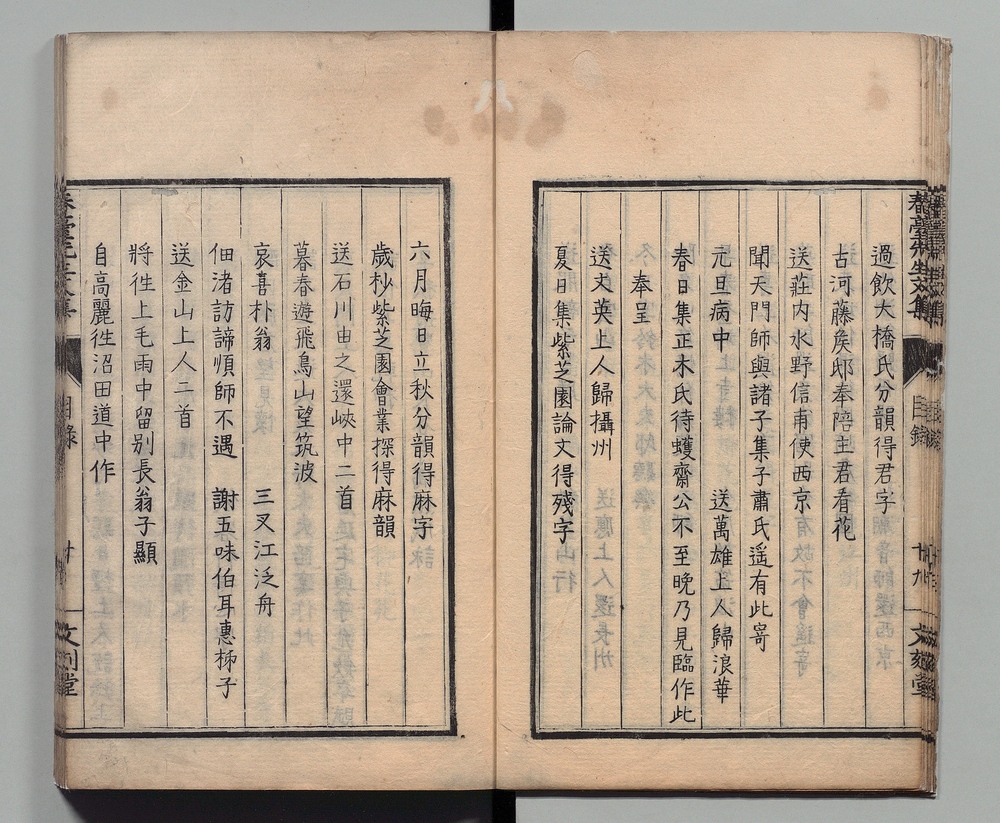 過飲大橋氏分韻得君字
古河藤矦邸奉陪主君看花
送莊内水野信甫使西京
聞天門師與諸子集子肅氏遙有此寄
元旦病中　送萬雄上人歸浪華
春日集正木氏待蠖齋公不至晩乃見臨作此
奉呈
送文英上人歸攝州
夏日集紫芝園論文得殘字
六月晦日立秋分韻得麻字
歲杪紫芝園會業探得麻韻
送石川由之還峽中二首
暮春遊飛鳥山望筑波
哀喜朴翁　三叉江泛舟
佃渚訪諦順師不遇　謝五味伯耳惠柹子
送金山上人二首
將徃上毛雨中留別長翁子顯
自高麗徃沼田道中作
目錄
文刻堂